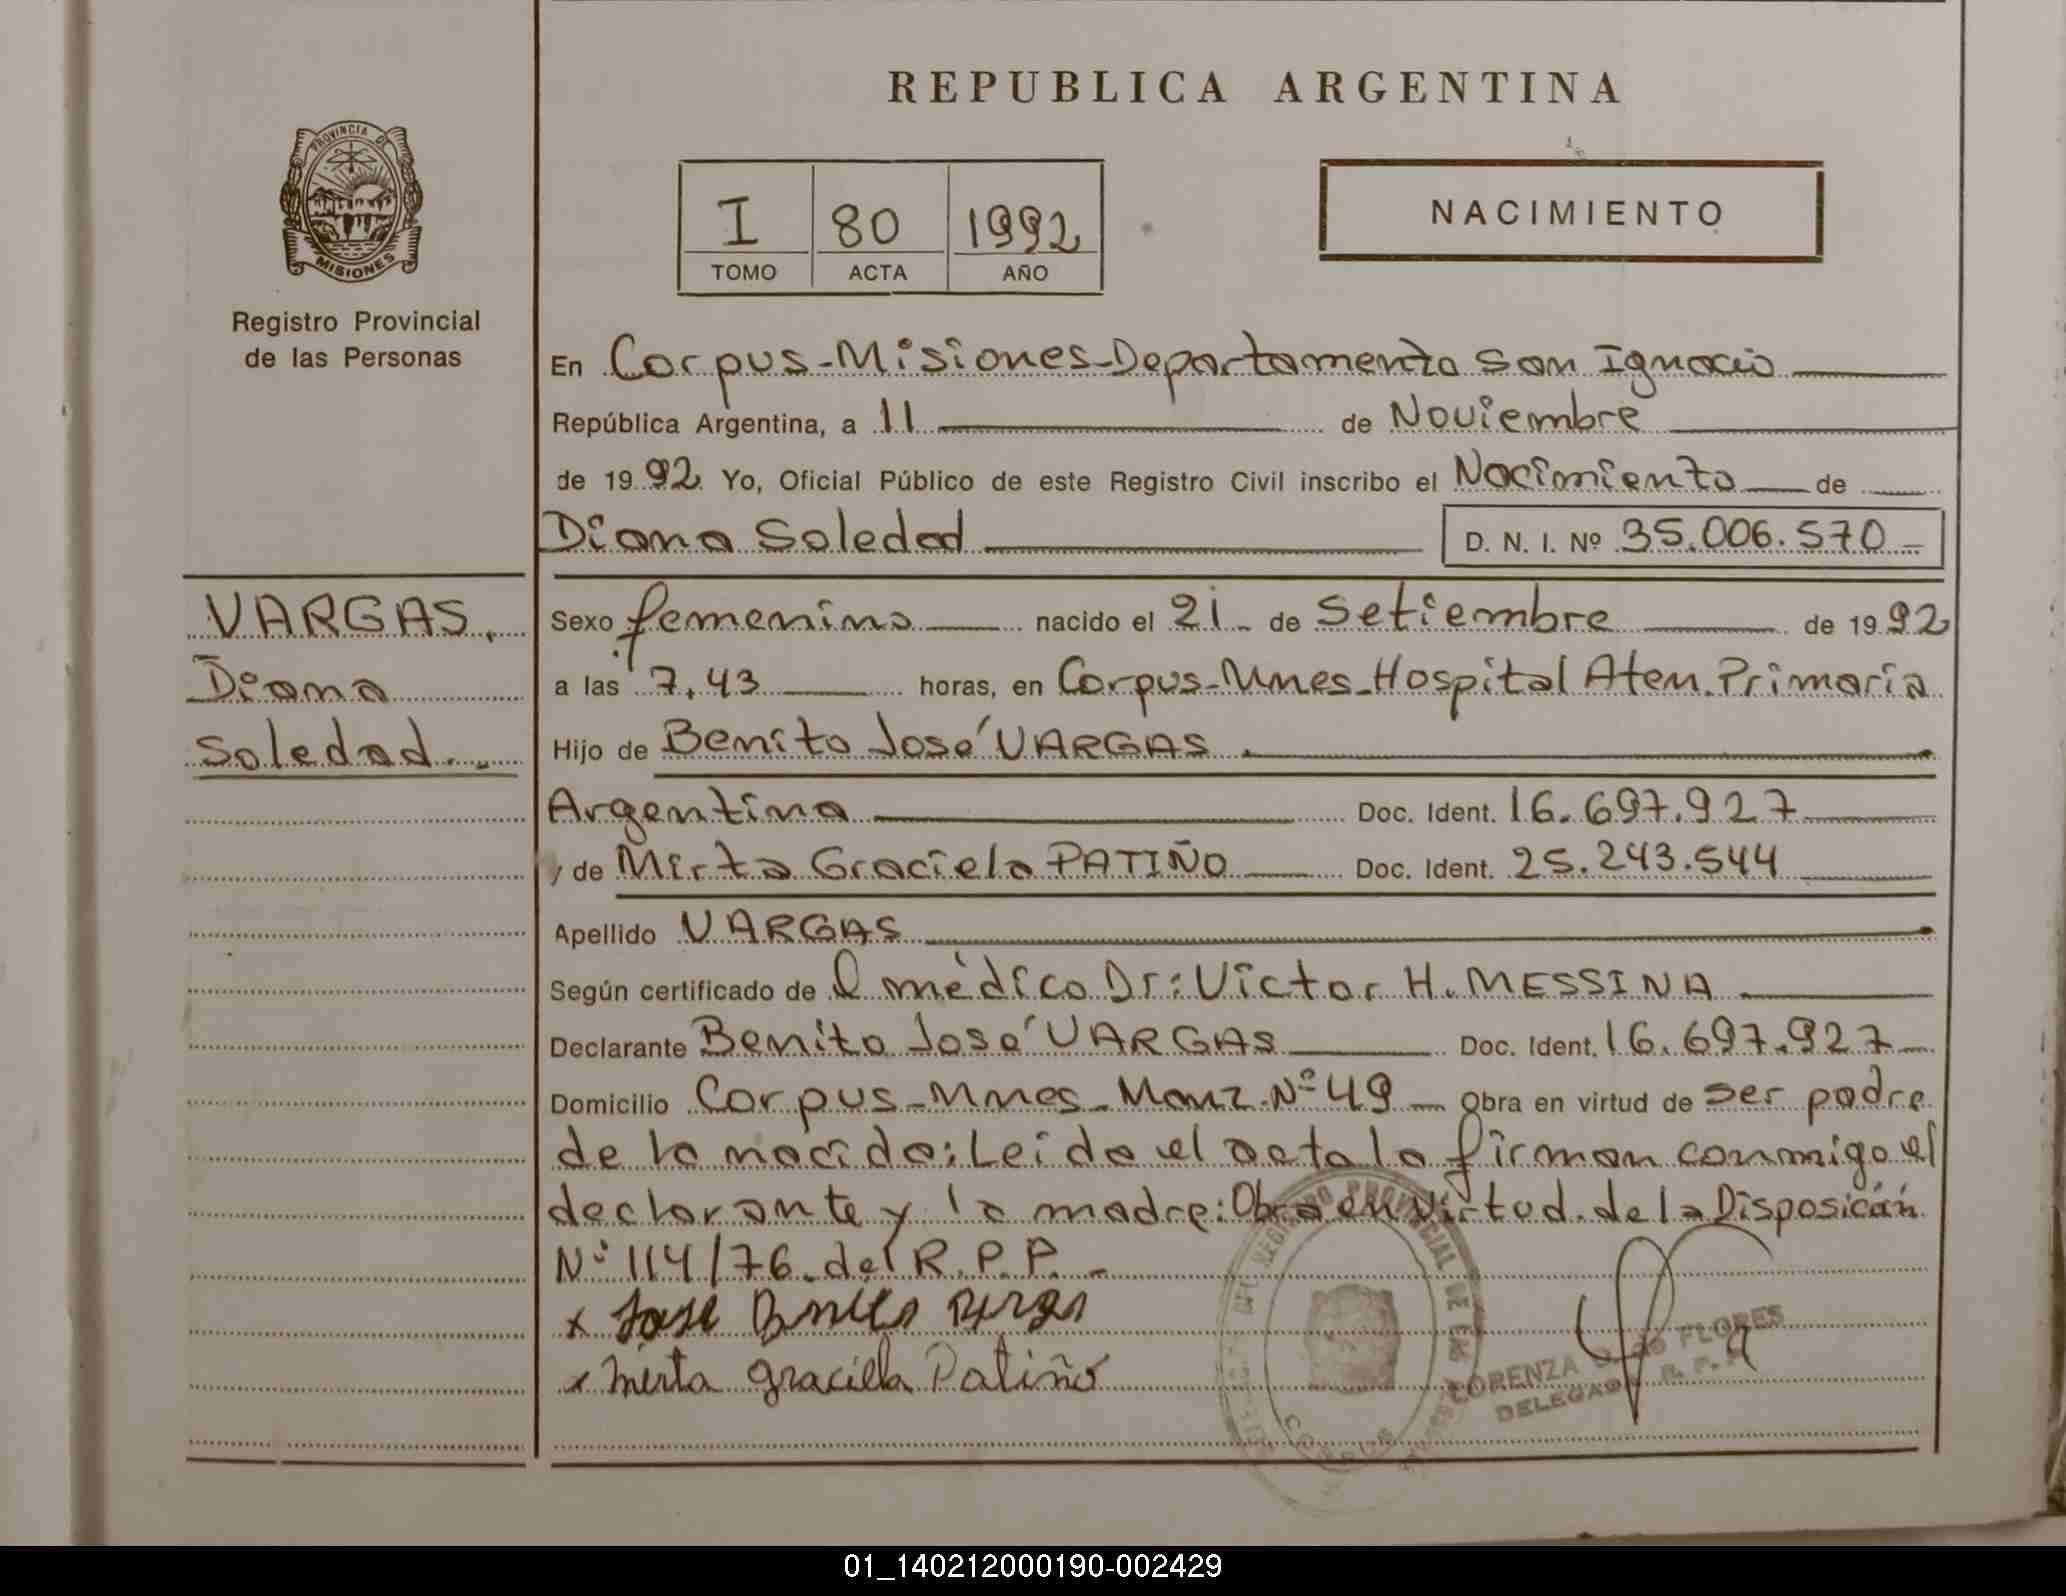 REPUBLICA ARGENTINA
PROVINCIA DE
MISIONES
Registro Provincial
de las Personas
I 80 1992
TOMO ACTA AÑO
NACIMIENTO
En Corpus-Misiones-Departamento San Ignacio
República Argentina, a 11 de Noviembre
de 1992 Yo, Oficial Público de este Registro Civil inscribo el Nacimiento de
Diana Soledad D. N. I. Nº 35.006.570
VARGAS,
Diana
Soledad.
Sexo femenino nacido el 21 de Setiembre de 1992
a las 7,43 horas, en Corpus-Mnes-Hospital Aten. Primaria
Hijo de Benito José VARGAS
Argentina Doc. Ident. 16.697.927
y de Mirta Graciela PATIÑO Doc. Ident. 25.243.544
Apellido VARGAS
Según certificado de médico Dr: Victor H. MESSINA
Declarante Benito José VARGAS Doc. Ident. 16.697.927
Domicilio Corpus-Mnes-Manz. Nº 49 Obra en virtud de ser padre
de la nacida: Leida el acta la firman conmigo el
declarante y la madre: Obra en virtud de la Disposición
Nº 114/76 del R.P.P.
x Jose
x Mirta Graciela Patiño
REGISTRO PROVINCIAL DE LAS
CORPUS
LORENZA de FLORES
DELEGADA R. P. P.
01_140212000190-002429